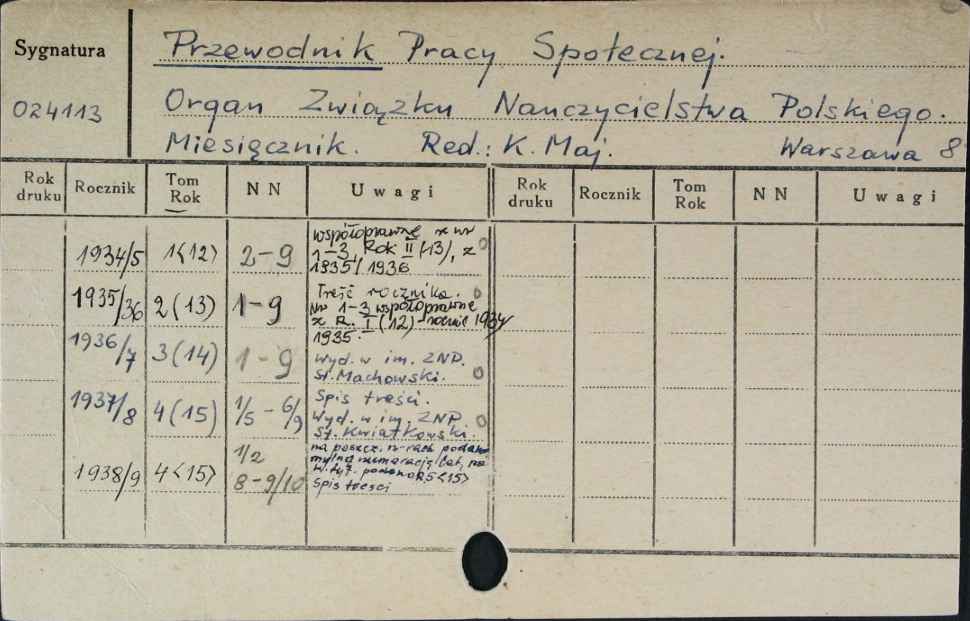 Sygnatura
Przewodnik Pracy Społecznej.
024113
Organ Związku Nauczycielstwa Polskiego.
Miesięcznik. Red.: K. Maj. Warszawa 8°
Rok druku Rocznik Tom Rok NN Uwagi Rok druku Rocznik Tom Rok NN Uwagi
1934/5 1<12> 2-9 współoprawne z nr
1-3, Rok II (13), z
1935/1936
1935/36 2(13) 1-9 Treść rocznika.
Nr 1-3 współoprawne
z R. I (12) - rocznik 1934/
1935.
1936/7 3(14) 1-9 wyd. w im. ZNP.
St. Machowski.
1937/8 4(15) 1/5 - 6/9 Spis treści.
Wyd. w im. ZNP
St. Kwiatkowski.
1938/9 4<15> 1/2
8-9/10 na poszcz. n-rach
5<15>
Spis treści